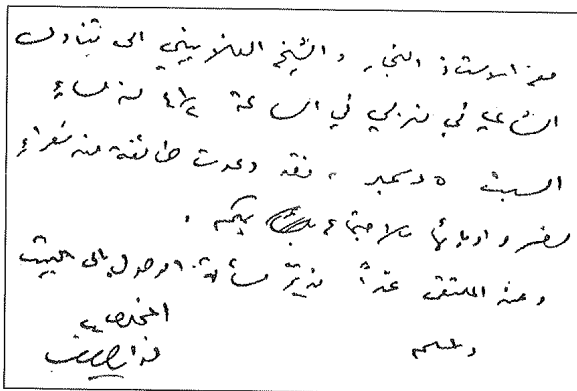 مع الاستاذ النجار والشيخ الغلاييني الى تناول
الشاي في منزلي في الساعة ٤ ١/٢ من مساء
السبت ٥ دسمبر ، فقد دعوت طائفة من شعراء
مصر وادبائها للاجتماع بكم .
وعند الملتقى غداً ندبّر مسألة الوصول الى البيت
المخلص